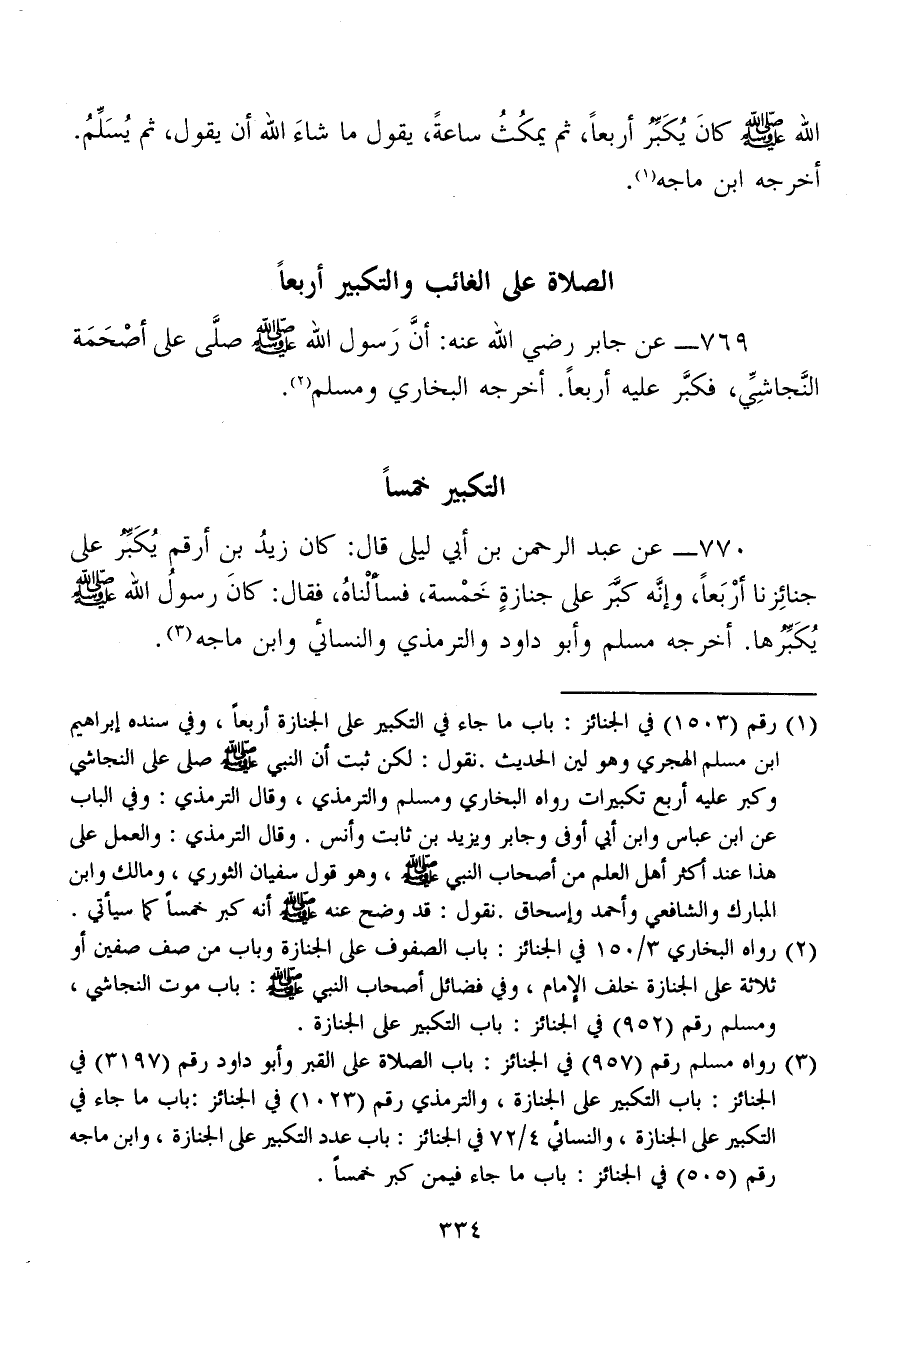 الله ﷺ كانَ يُكَبِّرُ أربعاً، ثم يمكُثُ ساعةً، يقول ما شاءَ الله أن يقول، ثم يُسَلِّمُ.
أخرجه ابن ماجه(١).
الصلاة على الغائب والتكبير أربعاً
٧٦٩ــ عن جابر رضي الله عنه: أنَّ رَسول الله ﷺ صلَّى على أصْحَمَة
النَّجاشِيِّ، فكبَّر عليه أربعاً. أخرجه البخاري ومسلم(٢).
التكبير خمساً
٧٧٠ــ عن عبد الرحمن بن أبي ليلى قال: كان زيدُ بن أرقم يُكَبِّرُ على
جنائِزنا أرْبَعاً، وإنَّه كبَّرَ على جنازةٍ خَمْسة، فسألْناهُ، فقال: كانَ رسولُ الله ﷺ
يُكَبِّرُها. أخرجه مسلم وأبو داود والترمذي والنسائي وابن ماجه(٣).
(١) رقم (١٥٠٣) في الجنائز : باب ما جاء في التكبير على الجنازة أربعاً ، وفي سنده إبراهيم
ابن مسلم الهجري وهو لين الحديث .نقول : لكن ثبت أن النبي ﷺ صلى على النجاشي
وكبر عليه أربع تكبيرات رواه البخاري ومسلم والترمذي ، وقال الترمذي : وفي الباب
عن ابن عباس وابن أبي أوفى وجابر ويزيد بن ثابت وأنس . وقال الترمذي : والعمل على
هذا عند أكثر أهل العلم من أصحاب النبي ﷺ ، وهو قول سفيان الثوري ، ومالك وابن
المبارك والشافعي وأحمد وإسحاق .نقول : قد وضح عنه ﷺ أنه كبر خمساً كما سيأتي .
(٢) رواه البخاري ١٥٠/٣ في الجنائز : باب الصفوف على الجنازة وباب من صف صفين أو
ثلاثة على الجنازة خلف الإمام ، وفي فضائل أصحاب النبي ﷺ : باب موت النجاشي ،
ومسلم رقم (٩٥٢) في الجنائز : باب التكبير على الجنازة .
(٣) رواه مسلم رقم (٩٥٧) في الجنائز : باب الصلاة على القبر وأبو داود رقم (٣١٩٧) في
الجنائز : باب التكبير على الجنازة ، والترمذي رقم (١٠٢٣) في الجنائز :باب ما جاء في
التكبير على الجنازة ، والنسائي ٧٢/٤ في الجنائز : باب عدد التكبير على الجنازة ، وابن ماجه
رقم (٥٠٥) في الجنائز : باب ما جاء فيمن كبر خمساً .
٣٣٤